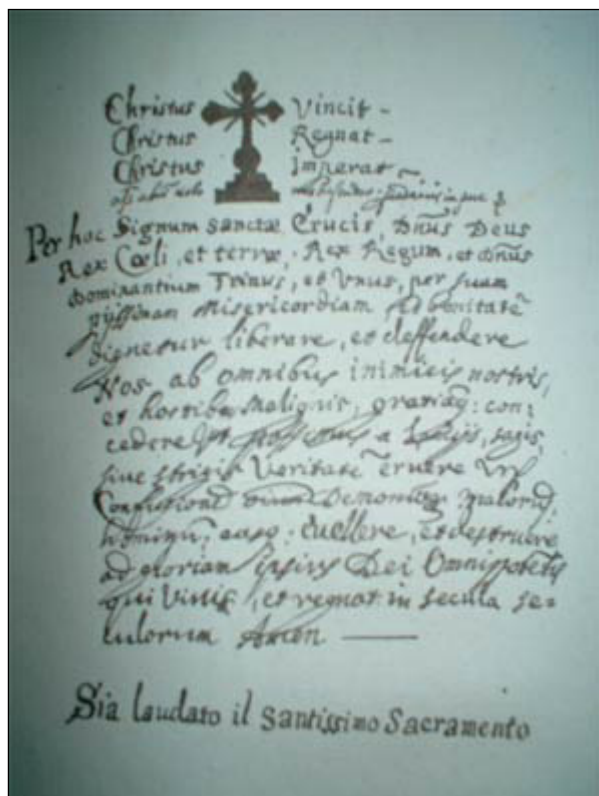 Christus Vincit -
Christus Regnat -
Christus Imperat
Per hoc Signum sanctæ Crucis, Dñus Deus
Rex Cœli, et terræ, Rex Regum, et Dñus
Dominantium Trinus, et Unus, per suam
pijssimam Misericordiam et bonitatẽ
dignetur liberare, et deffendere
Nos ab omnibus inimicis nostris,
et hostibus Malignis, gratiamq: con:
cedere Ut possimus a sagis,
sive strigis Veritatẽ eruere
Confusione Demonum malorũ
hominũ evellere, et destruere
ad gloriam ipsius Dei Omnipotẽtis
qui Vivit, et regnat in secula se=
culorum Amen
Sia laudato il Santissimo Sacramento